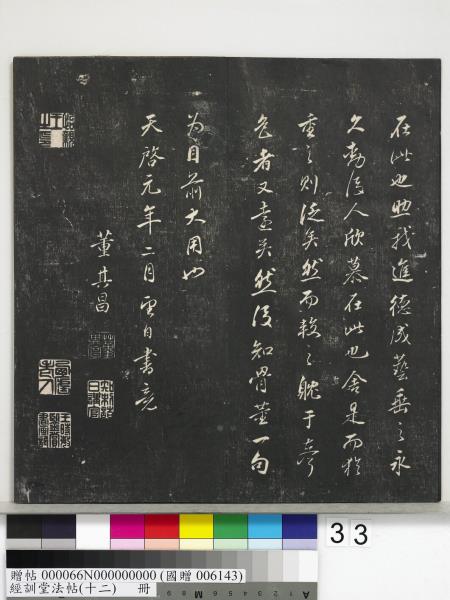 在此也助我進德成藝垂之永
久動後人欣慕在此也舍是而矜
重之則泛矣然而較之耽于聲
色者又遠矣然後知骨董一句
為目前大用也
天啓元年二月望日書竟
董其昌
知制誥日講官
33
贈帖 000066N000000000 (國贈 006143)
經訓堂法帖(十二) 冊